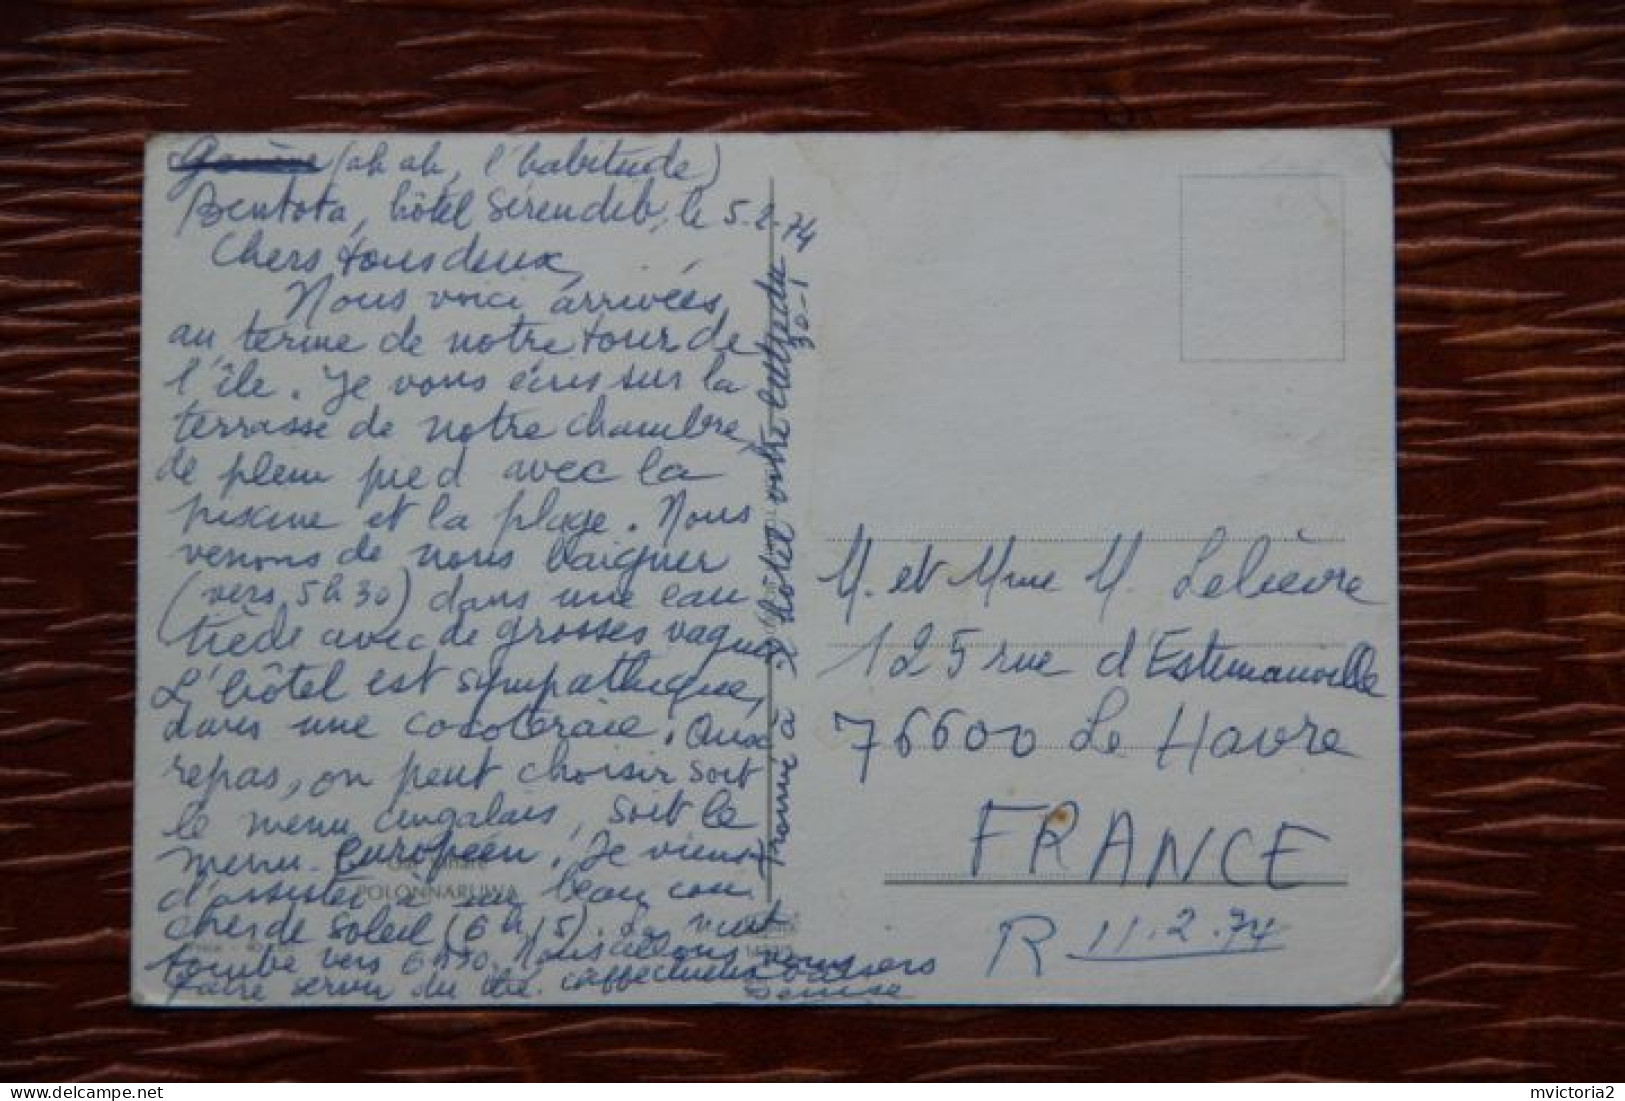 (ah ah, l'habitude)
Bentota, hôtel Serendib, le 5.2.74
Chers tous deux,
Nous voici arrivées
au terme de notre tour de
l'île. Je vous écris sur la
terrasse de notre chambre,
de plein pied avec la
piscine et la plage. Nous
venons de nous baigner
(vers 5h30) dans une eau
tiède avec de grosses vagues
L'hôtel est sympathique,
dans une cocoteraie. Aux
repas, on peut choisir soit
le menu cingalais, soit le
menu européen. Je viens
d'assister à un beau cou
cher de soleil (6h15). La nuit
tombe vers 6h30. Nous allons nous
faire servir du thé. Affectueux baisers
Denise
POLONNARUWA
Trouvé à l'hôtel votre lettre du
30-1
M. et Mme M. Lelièvre
125 rue d'Estimauville
76600 Le Havre
FRANCE
R 11.2.74
delcampe.net
mvictoria2